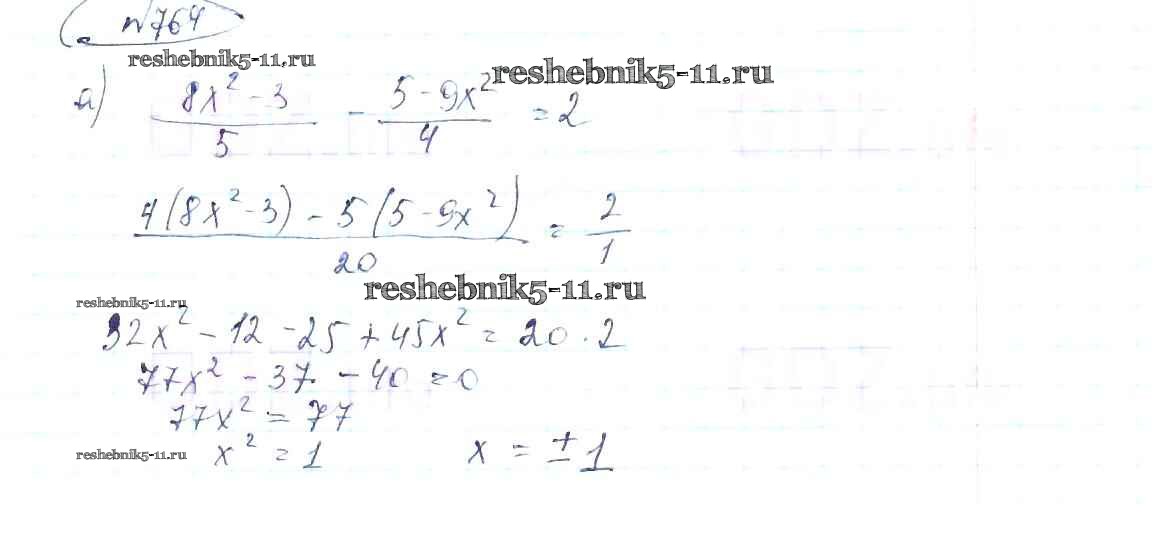 №764
reshebnik5-11.ru
reshebnik5-11.ru
а) (8x² - 3)/5 - (5 - 9x²)/4 = 2
(4(8x² - 3) - 5(5 - 9x²))/20 = 2/1
reshebnik5-11.ru
reshebnik5-11.ru
32x² - 12 - 25 + 45x² = 20 · 2
77x² - 37 - 40 = 0
77x² = 77
reshebnik5-11.ru
x² = 1 x = ±1